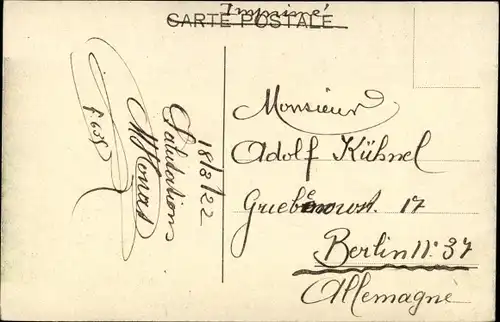 Imprimé
CARTE POSTALE
18/3/22
Salutations
Monsieur
Adolf Kühnel
17
Berlin N. 37
Allemagne